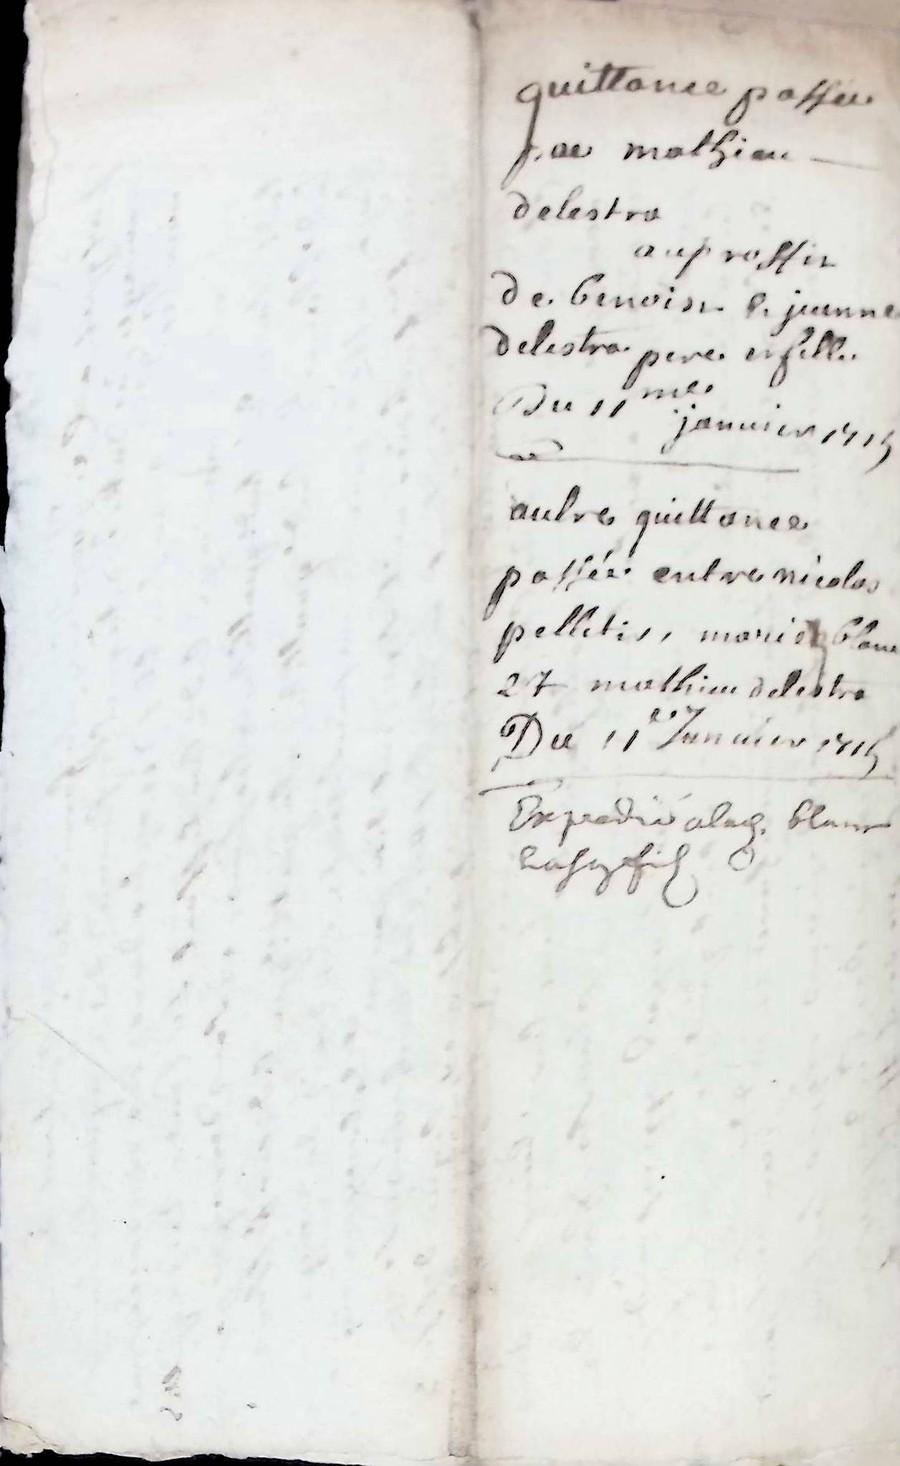 quittance passée
par mathieu
delestra
au proffit
de benoist & jeanne
delestra pere et fille
Du 11me
janvier 1715
autre quittance
passée entre nicolas
pelletis, marie blanc
et mathieu delestra
Du 11e Janvier 1715
Expedié blanc